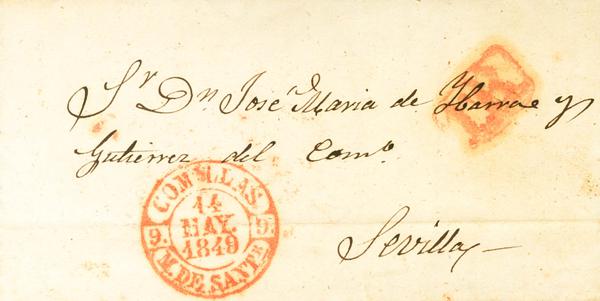 Sr Dn José Maria de Ybarra y
Gutierrez del Como.
Sevilla
COMILLAS.
14
MAY.
1849
9. 9.
M. DE SANTR